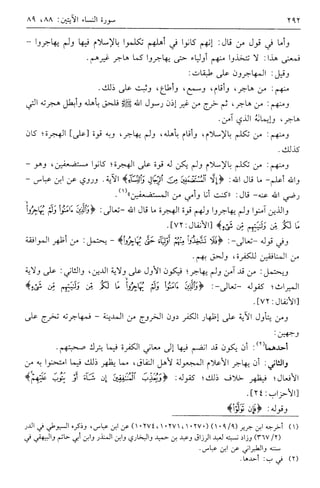 ٢٩٢ سورة النساء الآيتين: ٨٨، ٨٩
وأما في قول من قال: إنهم كانوا في أهلهم تكلموا بالإسلام فيها ولم يهاجروا -
فمعنى هذا: لا تتخذوا منهم أولياء حتى يهاجروا كما هاجر غيرهم.
وقيل: المهاجرون على طبقات:
منهم: من هاجر، وأقام، وسمع، وأطاع، وثبت على ذلك.
ومنهم: من هاجر، ثم خرج من غير إذن رسول الله ﷺ فلحق بأهله وأبطل هجرته التي
هاجر، وإيمانه الذي آمن.
ومنهم: من تكلم بالإسلام، وأقام بأهله، ولم يهاجر، وبه قوة [على] الهجرة؛ كان
كذلك.
ومنهم: من تكلم بالإسلام ولم يكن له قوة على الهجرة؛ كانوا مستضعفين، وهو -
والله أعلم- ما قال الله: ﴿إِلَّا الْمُسْتَضْعَفِينَ مِنَ الرِّجَالِ وَالنِّسَاءِ﴾ الآية. وروي عن ابن عباس -
رضي الله عنه- قال: «كنت أنا وأمي من المستضعفين»(١).
والذين آمنوا ولم يهاجروا ولهم قوة الهجرة ما قال الله -تعالى-: ﴿وَالَّذِينَ آمَنُوا وَلَمْ يُهَاجِرُوا
مَا لَكُم مِّن وَلَايَتِهِم مِّن شَيْءٍ﴾ [الأنفال: ٧٢].
وفي قوله -تعالى-: ﴿فَلَا تَتَّخِذُوا مِنْهُمْ أَوْلِيَاءَ حَتَّىٰ يُهَاجِرُوا﴾ - يحتمل: من أظهر الموافقة
من المنافقين للكفرة، ولحق بهم.
ويحتمل: من قد آمن ولم يهاجر؛ فيكون الأول على ولاية الدين، والثاني: على ولاية
الميراث؛ كقوله -تعالى-: ﴿وَالَّذِينَ آمَنُوا وَلَمْ يُهَاجِرُوا مَا لَكُم مِّن وَلَايَتِهِم مِّن شَيْءٍ﴾
[الأنفال: ٧٢].
ومن يتأول الآية على إظهار الكفر دون الخروج من المدينة - فمهاجرته تخرج على
وجهين:
أحدهما(٢): أن يكون قد انضم فيها إلى معاني الكفرة فيما يترك صحبتهم.
والثاني: أن يهاجر الأعلام المجعولة لأهل النفاق، مما يظهر ذلك فيما امتحنوا به من
الأفعال؛ فيظهر خلاف ذلك؛ كقوله: ﴿وَيُعَذِّبَ الْمُنَافِقِينَ إِن شَاءَ أَوْ يَتُوبَ عَلَيْهِمْ﴾
[الأحزاب: ٢٤].
وقوله: ﴿فَإِن تَوَلَّوْا﴾
(١) أخرجه ابن جرير (١٠٩/٩) (١٠٢٧٠، ١٠٢٧١، ١٠٢٧٤) عن ابن عباس، وذكره السيوطي في الدر
(٣٦٧/٢) وزاد نسبته لعبد الرزاق وعبد بن حميد والبخاري وابن المنذر وابن أبي حاتم والبيهقي في
سننه والطبراني عن ابن عباس.
(٢) في ب: أحدها.